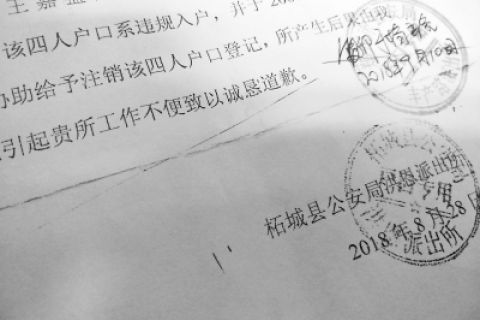 该四人户口系违规入户，并于
协助给予注销该四人户口登记，所产生后果由我
引起贵所工作不便致以诚恳道歉。
2018年9月10日
柘城县公安局洪恩派出所
2018年8月28日
派出所